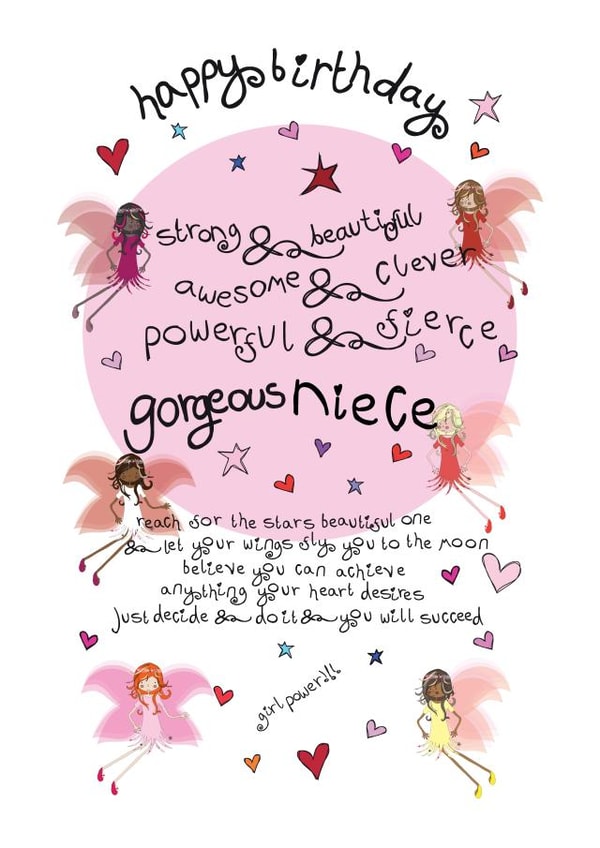 happy birthday
strong & beautiful
awesome & clever
powerful & fierce
gorgeous niece
reach for the stars beautiful one
& let your wings fly you to the moon
believe you can achieve
anything your heart desires
Just decide & do it & you will succeed
girl power!!!